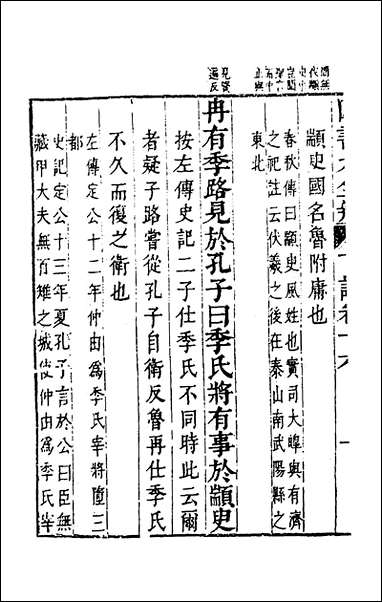 書大全
論卷十六
一
顓臾國名魯附庸也
春秋傳曰顓臾風姓也實司大皞與有濟
之祀註云伏羲之後在泰山南武陽縣之
東北
見賢
遍反
冉有季路見於孔子曰季氏將有事於顓臾
按左傳史記二子仕季氏不同時此云爾
者疑子路嘗從孔子自衛反魯再仕季氏
不久而復之衛也
左傳定公十二年仲由為季氏宰將墮三
都
史記定公十三年夏孔子言於公曰臣無
藏甲大夫無百雉之城使仲由為季氏宰